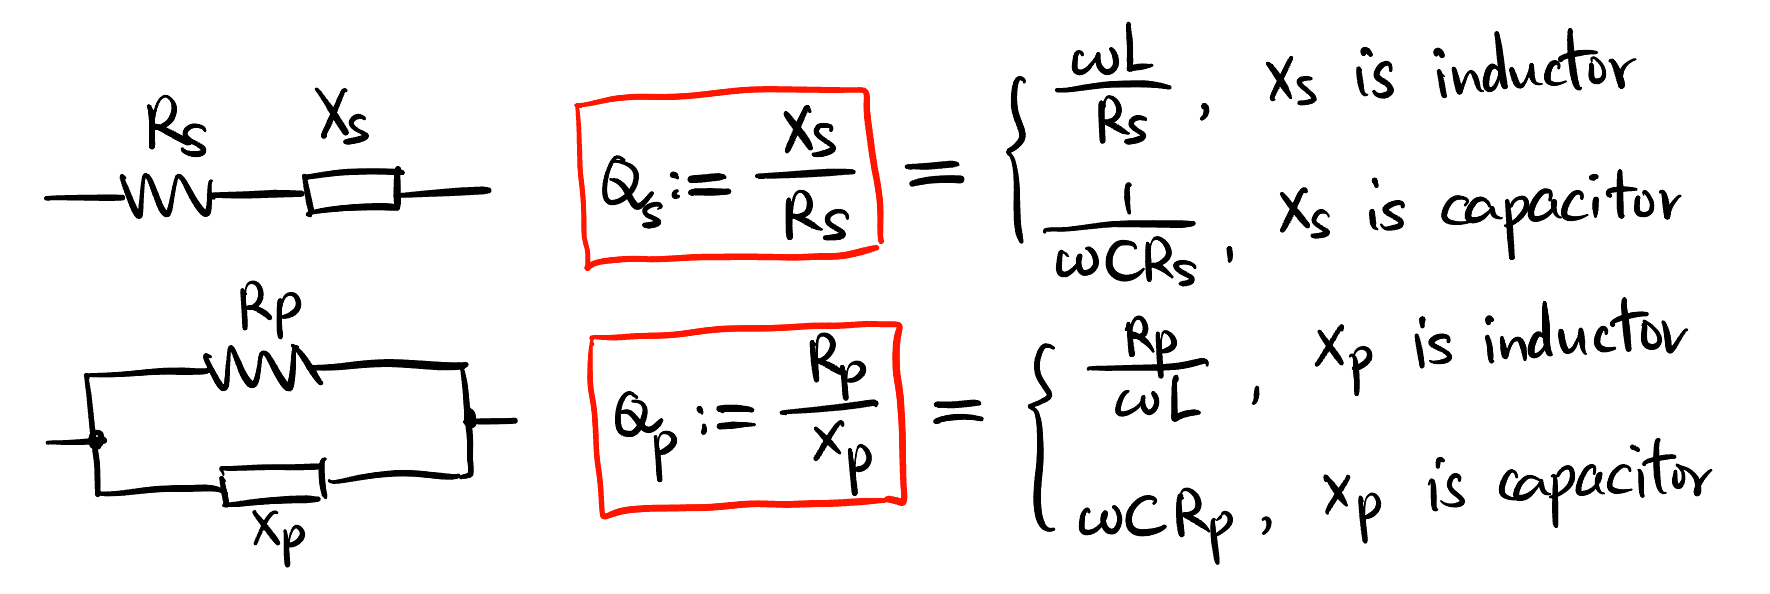 Rs Xs
Qs := Xs / Rs = { ωL / Rs , Xs is inductor
1 / ωCRs , Xs is capacitor
Rp
Xp
Qp := Rp / Xp = { Rp / ωL , Xp is inductor
ωCRp , Xp is capacitor